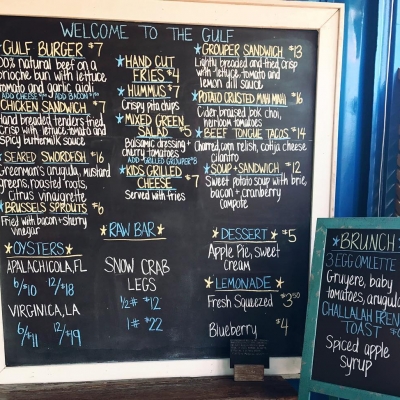 WELCOME TO THE GULF
GULF BURGER $7
100% natural beef on a
brioche bun with lettuce,
tomato and garlic aioli
ADD CHEESE ADD BACON
CHICKEN SANDWICH $7
Hand breaded tenders fried
crisp with lettuce, tomato and
spicy buttermilk sauce
SEARED SWORDFISH $16
Greenman's arugula, mustard
greens, roasted roots,
citrus vinaigrette
BRUSSELS SPROUTS $6
Fried with bacon + sherry
vinegar
OYSTERS
APALACHICOLA, FL
6/$10 12/$18
VIRGINICA, LA
6/$11 12/$19
HAND CUT
FRIES $4
HUMMUS $7
Crispy pita chips
MIXED GREEN
SALAD $5
Balsamic dressing +
cherry tomatoes
ADD GRILLED GROUPER $8
KIDS GRILLED
CHEESE $7
Served with fries
RAW BAR
SNOW CRAB
LEGS
1/2# $12
1# $22
GROUPER SANDWICH $13
Lightly breaded and fried crisp
with lettuce, tomato and
lemon dill sauce
POTATO CRUSTED MAHI MAHI $16
Cider, braised bok choi,
heirloom tomatoes
BEEF TONGUE TACOS $14
Charred corn relish, cotija cheese
cilantro
SOUP + SANDWICH $12
Sweet potato soup with brie,
bacon + cranberry
compote
DESSERT $5
Apple Pie, sweet
cream
LEMONADE
Fresh Squeezed $3.50
Blueberry $4
BRUNCH
3 EGG OMLETTE
Gruyere, baby
tomatoes, arugula
CHALLAH FREN
TOAST
Spiced apple
syrup